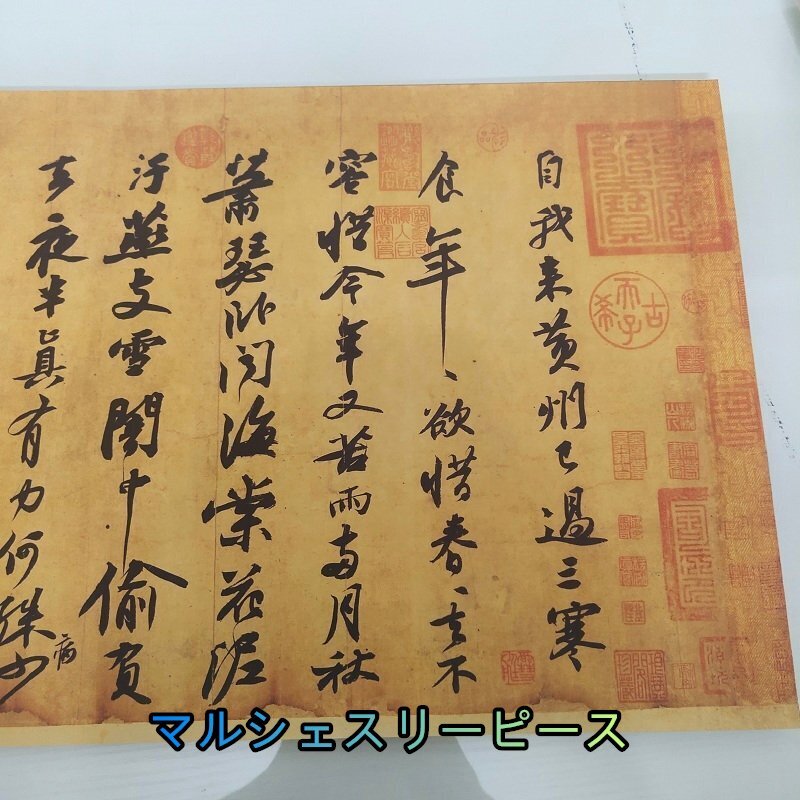 自我来黄州已過三寒
食年、欲惜春、去不
容惜今年又苦雨两月秋
蕭瑟卧聞海棠花泥
汙燕支雪闇中偷負
去夜半真有力何殊少
病
古希天子
マルシェスリーピース